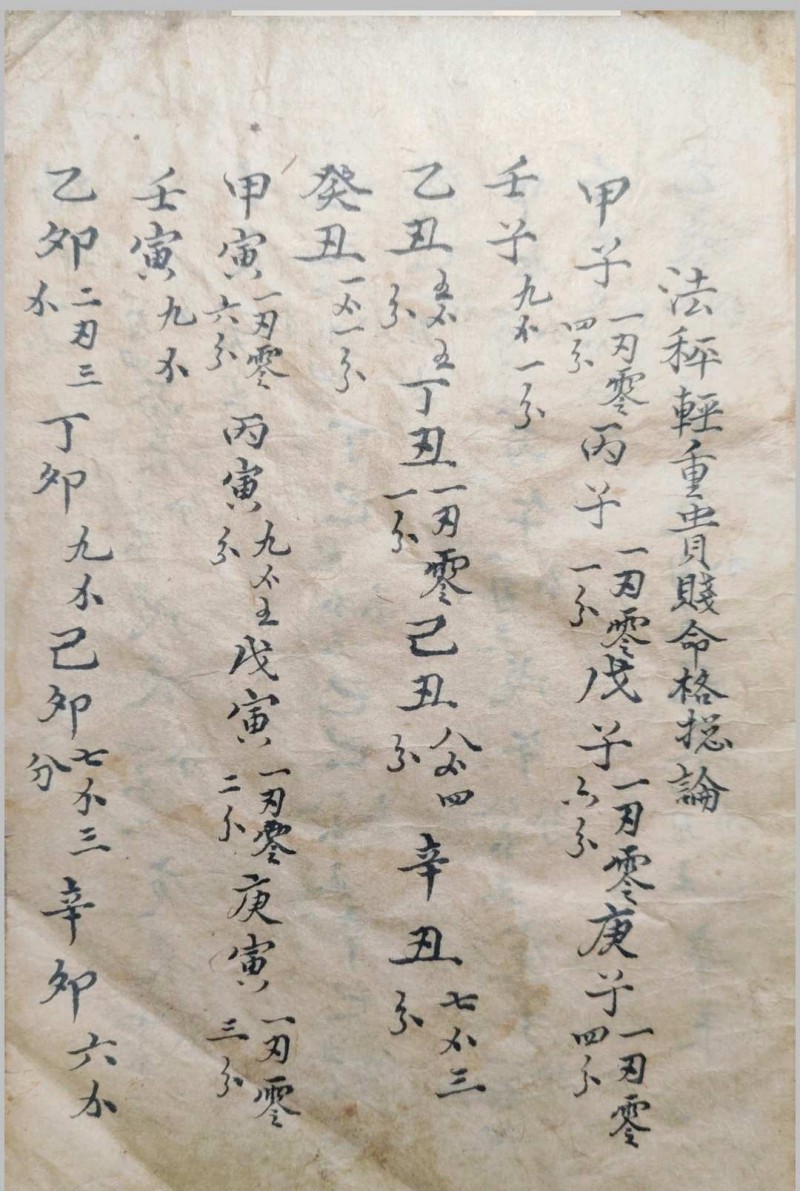 法秤輕重貴賤命格捴論
甲子一刃零四分丙子一刃零一分戊子一刃零六分庚子一刃零四分
壬子九不一分
乙丑五不五分丁丑一刃零一分己丑八不四分辛丑七不三分
癸丑一不一分
甲寅一刃零六分丙寅九不五分戊寅一刃零二分庚寅一刃零三分
壬寅九不
乙卯二刃三不丁卯九不己卯七不三分辛卯六不